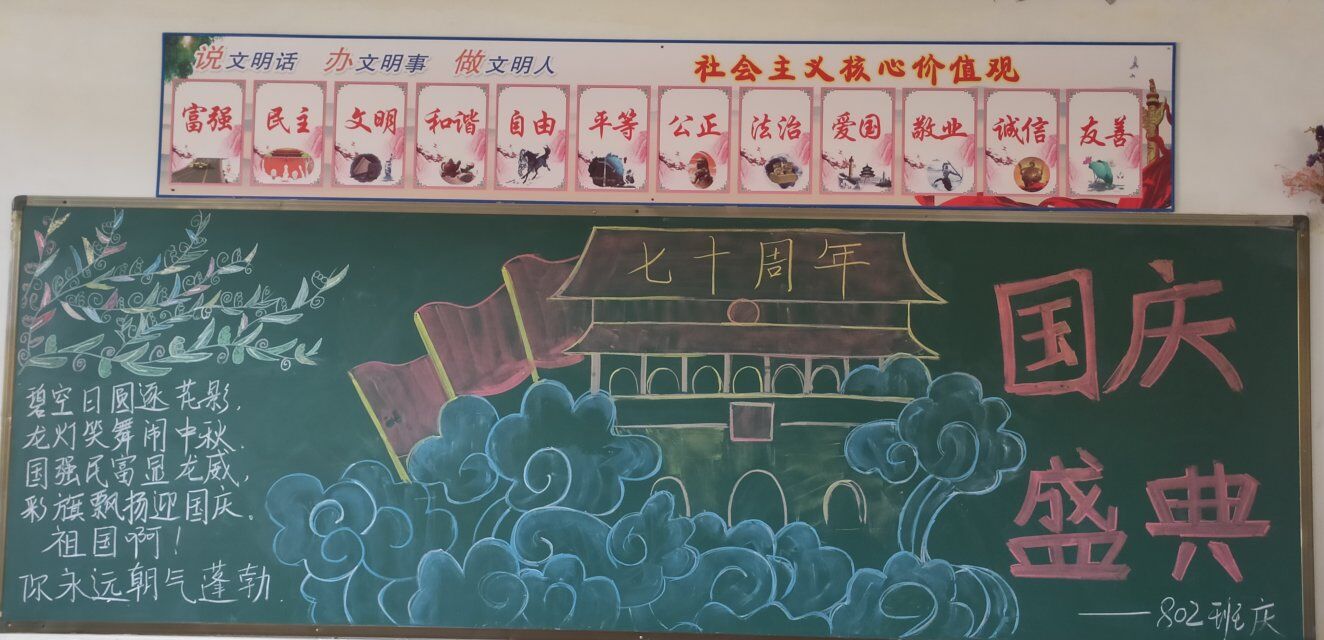 说文明话 办文明事 做文明人
社会主义核心价值观
富强 民主 文明 和谐 自由 平等 公正 法治 爱国 敬业 诚信 友善
七十周年
国庆
盛典
碧空日圆逐花影，
龙灯笑舞闹中秋．
国强民富显龙威，
彩旗飘扬迎国庆．
祖国啊！
你永远朝气蓬勃．
——802班庆